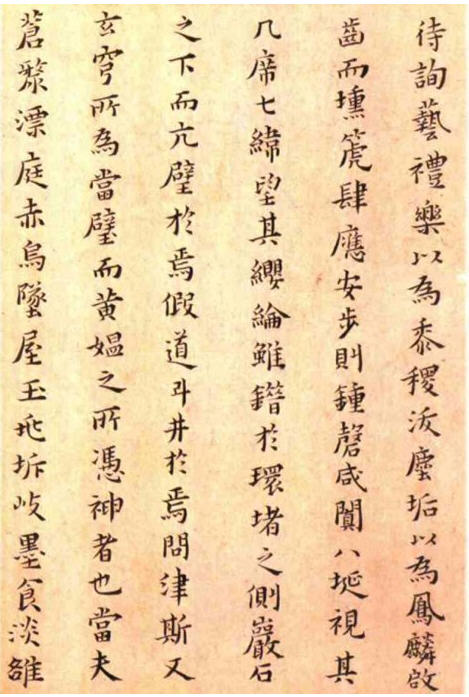 待詢藝禮樂以為黍稷泼塵垢以為鳳麟啟
齒而壎箎肆應安步則鍾磬咸闐八埏視其
几席七緯望其纓綸雖鐕於環堵之側巖石
之下而亢璧於焉假道斗井於焉問津斯又
玄穹所為當璧而黄媼之所憑神者也當夫
蒼漦漂庭赤烏墜屋玉兆坼岐墨食淡雒